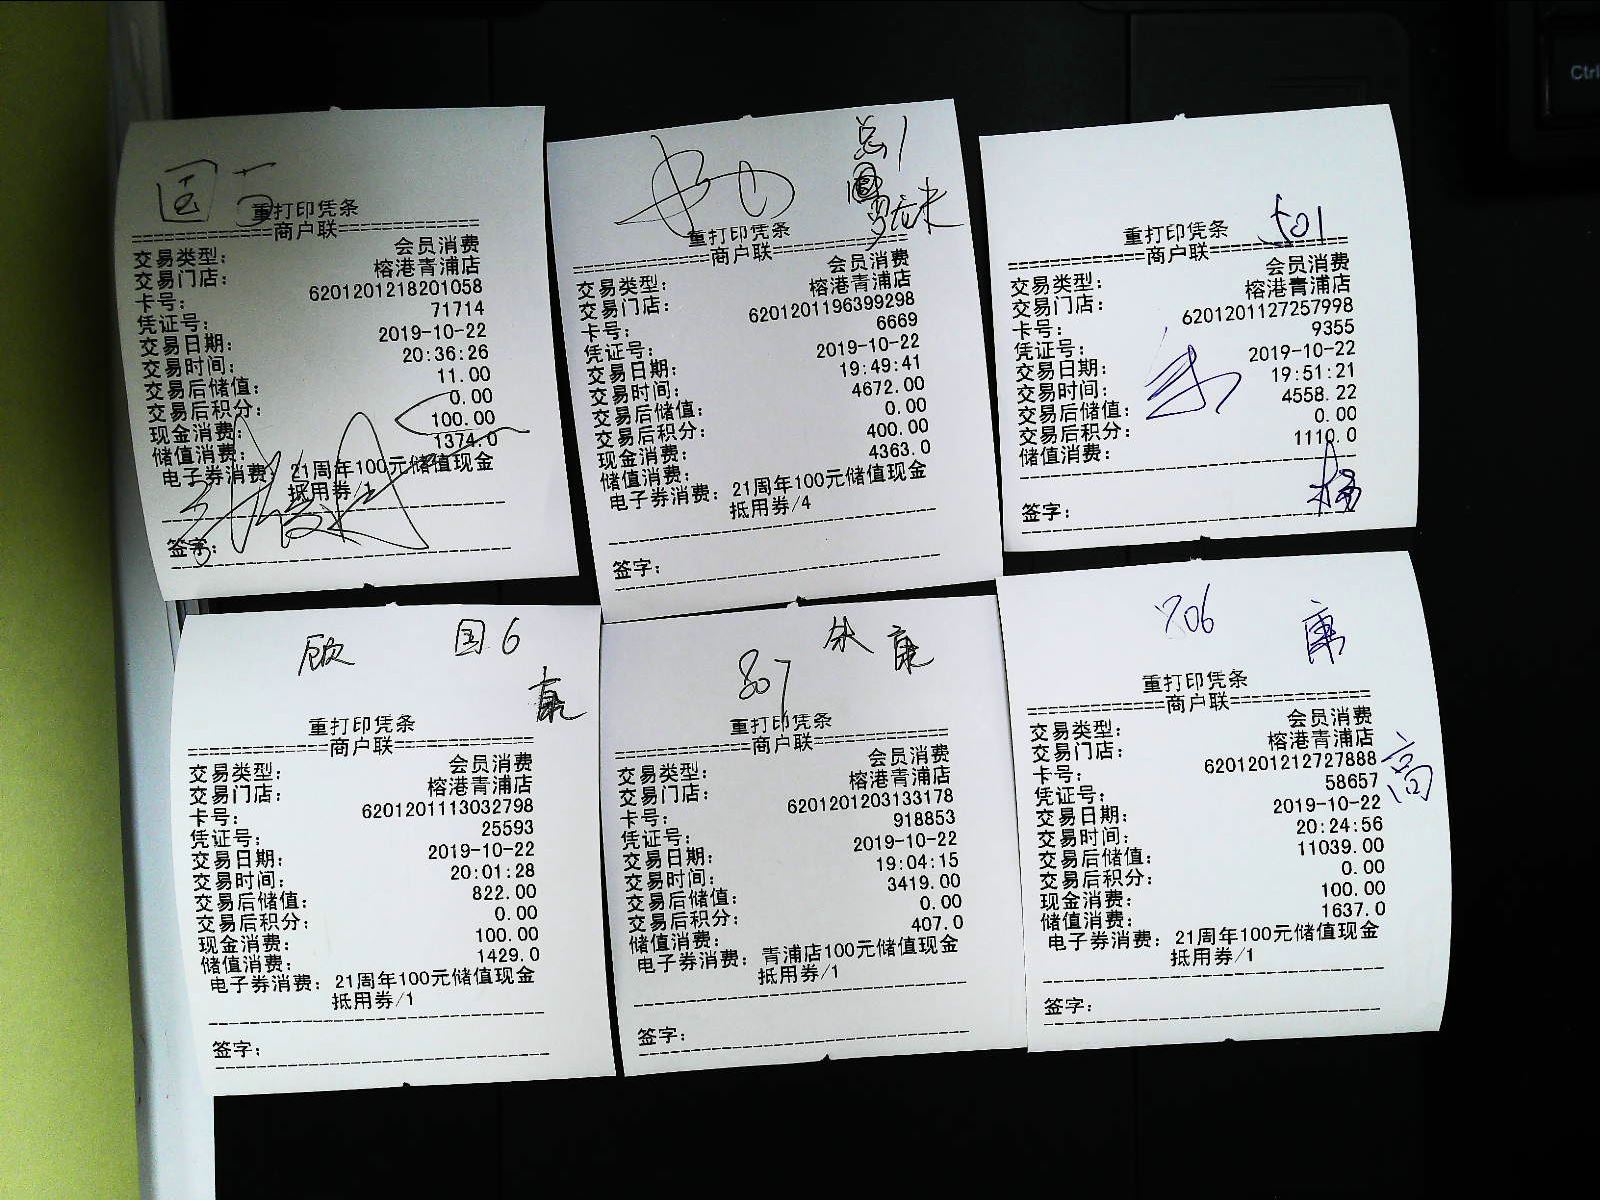 Ctrl
国
重打印凭条
=============商户联=============
交易类型: 会员消费
交易门店: 榕港青浦店
卡号: 6201201218201058
凭证号: 71714
交易日期: 2019-10-22
交易时间: 20:36:26
交易后储值: 11.00
交易后积分: 0.00
现金消费: 100.00
储值消费: 1374.0
电子券消费: 21周年100元储值现金
抵用券/1
签字:
总1
重打印凭条
=============商户联=============
交易类型: 会员消费
交易门店: 榕港青浦店
卡号: 6201201196399298
凭证号: 6669
交易日期: 2019-10-22
交易时间: 19:49:41
交易后储值: 4672.00
交易后积分: 0.00
现金消费: 400.00
储值消费: 4363.0
电子券消费: 21周年100元储值现金
抵用券/4
签字:
重打印凭条
=============商户联=============
交易类型: 会员消费
交易门店: 榕港青浦店
卡号: 6201201127257998
凭证号: 9355
交易日期: 2019-10-22
交易时间: 19:51:21
交易后储值: 4558.22
交易后积分: 0.00
储值消费: 1110.0
签字:
顾 国6
康
重打印凭条
=============商户联=============
交易类型: 会员消费
交易门店: 榕港青浦店
卡号: 6201201113032798
凭证号: 25593
交易日期: 2019-10-22
交易时间: 20:01:28
交易后储值: 822.00
交易后积分: 0.00
现金消费: 100.00
储值消费: 1429.0
电子券消费: 21周年100元储值现金
抵用券/1
签字:
807 康
重打印凭条
=============商户联=============
交易类型: 会员消费
交易门店: 榕港青浦店
卡号: 6201201203133178
凭证号: 918853
交易日期: 2019-10-22
交易时间: 19:04:15
交易后储值: 3419.00
交易后积分: 0.00
储值消费: 407.0
电子券消费: 青浦店100元储值现金
抵用券/1
签字:
康
重打印凭条
=============商户联=============
交易类型: 会员消费
交易门店: 榕港青浦店
卡号: 6201201212727888
高
凭证号: 58657
交易日期: 2019-10-22
交易时间: 20:24:56
交易后储值: 11039.00
交易后积分: 0.00
现金消费: 100.00
储值消费: 1637.0
电子券消费: 21周年100元储值现金
抵用券/1
签字: